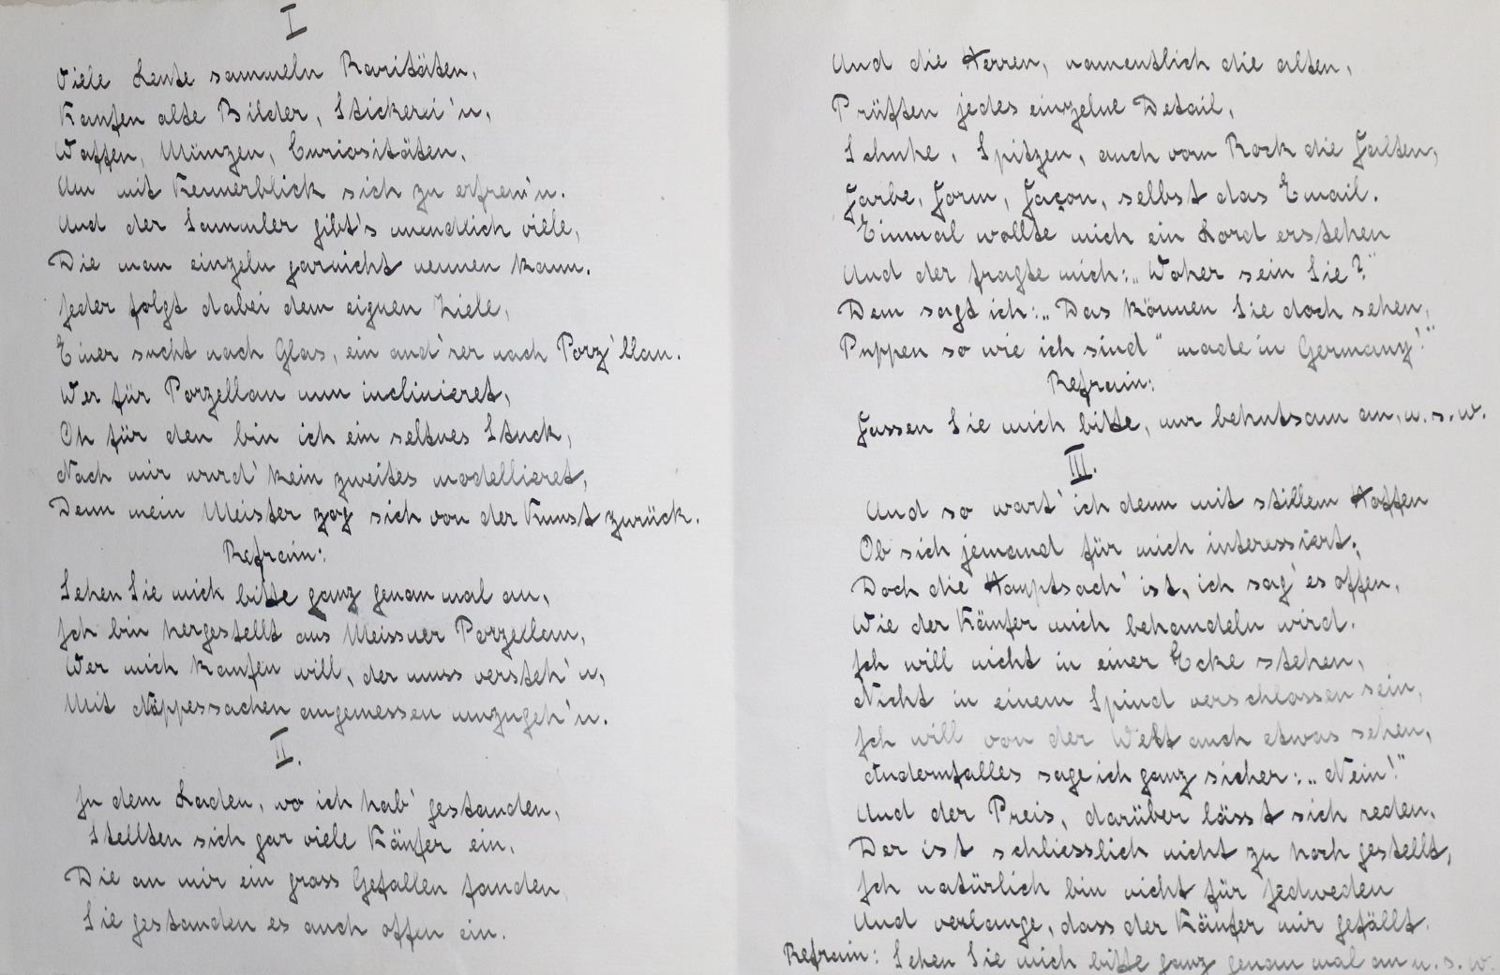 I
Viele Leute sammeln Raritäten,
Kaufen alte Bilder, Stickerei'n,
Waffen, Münzen, Curiositäten,
Um mit Kennerblick sich zu erfreu'n.
Und der Sammler gibt's unendlich viele,
Die man einzeln garnicht nennen kann.
Jeder folgt dabei dem eignen Ziele,
Einer sucht nach Glas, ein and'rer nach Porz'llan.
Wer für Porzellan nun inclinieret,
Oh für den bin ich ein seltnes Stuck,
Nach mir wurd' kein zweites modellieret,
Denn mein Meister zog sich von der Kunst zurück.
Refrain:
Sehen Sie mich bitte ganz genau mal an,
Ich bin hergestellt aus Meissner Porzellan,
Wer mich kaufen will, der muss versteh'n,
Mit Nippessachen angemessen umzugeh'n.
II.
In dem Laden, wo ich hab' gestanden,
Stellten sich gar viele Käufer ein,
Die an mir ein gross Gefallen fanden,
Sie gestanden es auch offen ein.
Und die Herren, namentlich die alten,
Prüften jedes einzelne Detail,
Schuhe, Spitzen, auch vom Rock die Falten,
Farbe, Form, Façon, selbst das Email.
Einmal wollte mich ein Lord erstehen
Und der fragte mich: „Woher sein Sie?"
Dem sagt ich: „Das können Sie doch sehen,
Puppen so wie ich sind "made in Germany!"
Refrain:
Fassen Sie mich bitte, nur behutsam an, u.s.w.
III.
Und so wart' ich denn mit stillem Hoffen
Ob sich jemand für mich interessiert.
Doch die Hauptsach' ist, ich sag' es offen,
Wie der Käufer mich behandeln wird.
Ich will nicht in einer Ecke stehen,
Nicht in einem Spind verschlossen sein,
Ich will von der Welt auch etwas sehen,
Andernfalles sage ich ganz sicher: „Nein!"
Und der Preis, darüber lässt sich reden,
Der ist schliesslich nicht zu hoch gestellt,
Ich natürlich bin nicht für Jedweden
Und verlange, dass der Käufer mir gefällt.
Refrain: Sehen Sie mich bitte ganz genau mal an u.s.w.